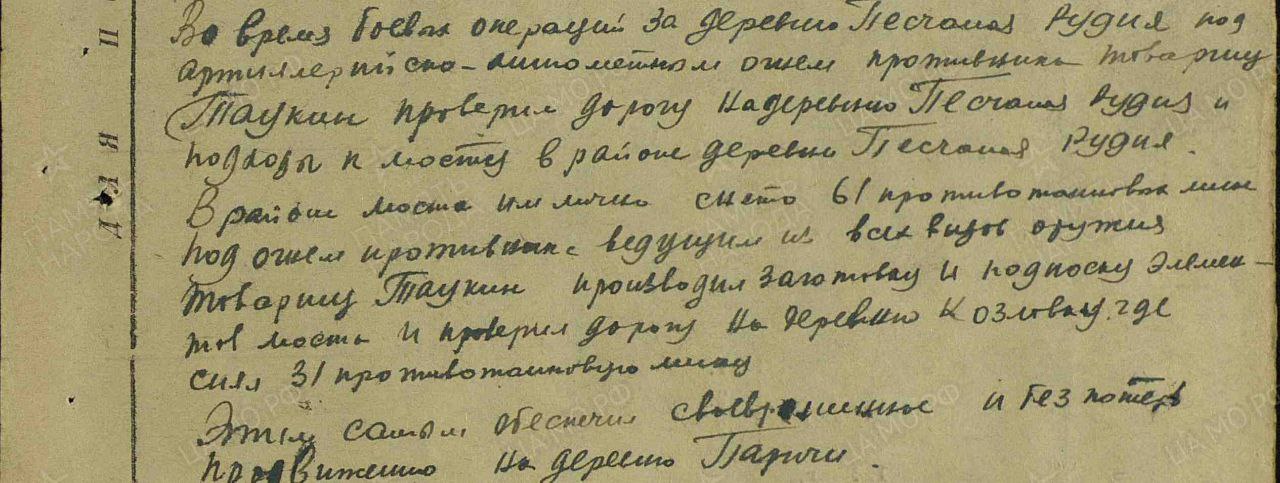 Во время боевых операций за деревню Песчаная Рудня под
артиллерийско-минометным огнем противника товарищ
Таукин проверил дорогу на деревню Песчаная Рудня и
подходы к мосту в районе деревни Песчаная Рудня.
В районе моста им лично снято 61 противотанковых мин
под огнем противника ведущим из всех видов оружия
товарищ Таукин производил заготовку и подноску элемен-
тов моста и проверил дорогу на деревню Козловку, где
снял 31 противотанковую мину
Этим самым обеспечил своевременное и без потерь
продвижению на деревню Паричи.